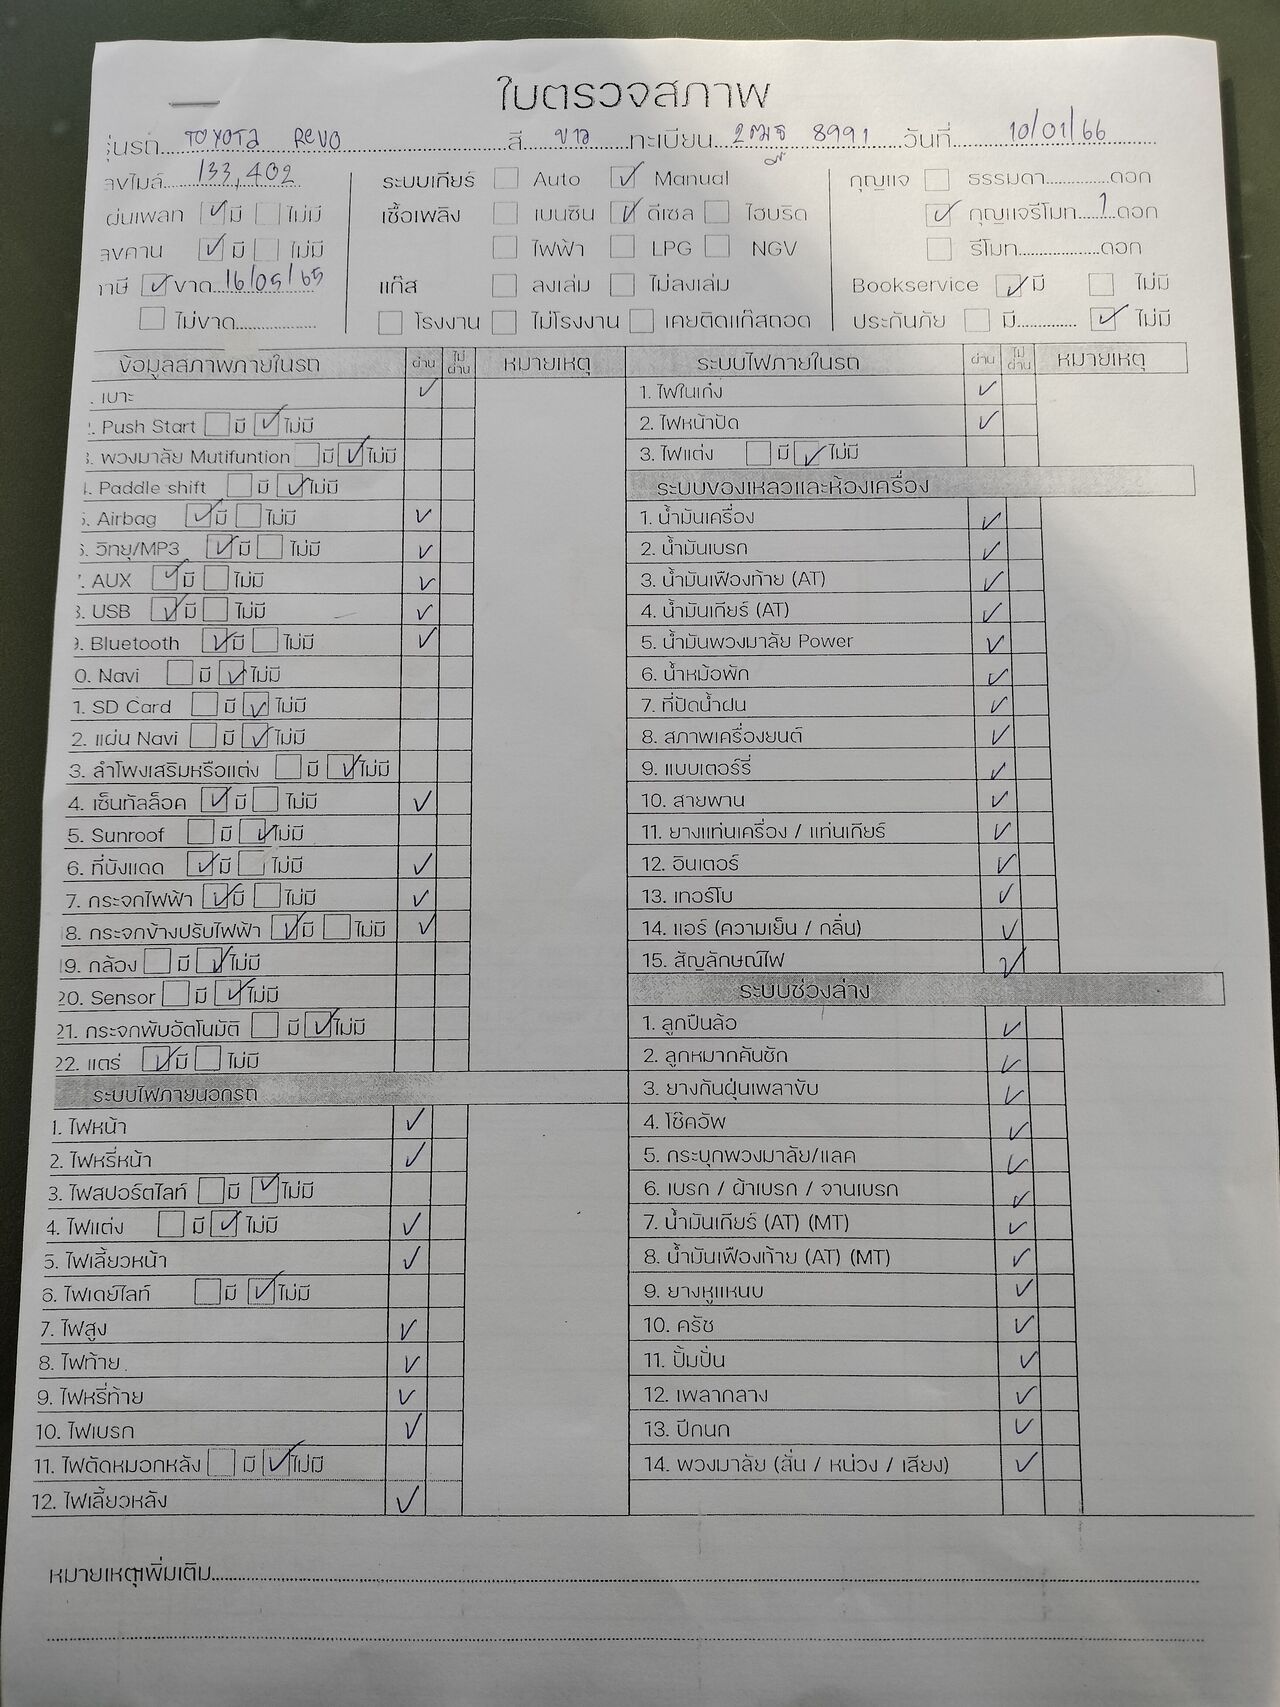 ใบตรวจสภาพ
รุ่นรถ TOYOTA REVO สี ขาว ทะเบียน 8991 วันที่ 10/01/66
133,402 ระบบเกียร์ Auto Manual กุญแจ ธรรมดา ดอก
แผ่นเพลท มี ไม่มี เชื้อเพลิง เบนซิน ดีเซล ไฮบริด กุญแจรีโมท 1 ดอก
มี ไม่มี ไฟฟ้า LPG NGV รีโมท ดอก
ขาด 16/05/65 แก๊ส ลงเล่ม ไม่ลงเล่ม Bookservice มี ไม่มี
ไม่ขาด โรงงาน ไม่โรงงาน เคยติดแก๊สถอด ประกันภัย มี ไม่มี
ข้อมูลสภาพภายในรถ ผ่าน ไม่ผ่าน หมายเหตุ
. เบาะ
. Push Start มี ไม่มี
3. พวงมาลัย Mutifuntion มี ไม่มี
. Paddle shift มี ไม่มี
5. Airbag มี ไม่มี
6. วิทยุ/MP3 มี ไม่มี
7. AUX มี ไม่มี
8. USB มี ไม่มี
9. Bluetooth มี ไม่มี
0. Navi มี ไม่มี
1. SD Card มี ไม่มี
2. แผ่น Navi มี ไม่มี
3. ลำโพงเสริมหรือแต่ง มี ไม่มี
4. เซ็นทัลล็อค มี ไม่มี
5. Sunroof มี ไม่มี
6. ที่บังแดด มี ไม่มี
7. กระจกไฟฟ้า มี ไม่มี
18. กระจกข้างปรับไฟฟ้า มี ไม่มี
19. กล้อง มี ไม่มี
20. Sensor มี ไม่มี
21. กระจกพับอัตโนมัติ มี ไม่มี
22. แตร่ มี ไม่มี
ระบบไฟภายนอกรถ
1. ไฟหน้า
2. ไฟหรี่หน้า
3. ไฟสปอร์ตไลท์ มี ไม่มี
4. ไฟแต่ง มี ไม่มี
5. ไฟเลี้ยวหน้า
6. ไฟเดย์ไลท์ มี ไม่มี
7. ไฟสูง
8. ไฟท้าย
9. ไฟหรี่ท้าย
10. ไฟเบรก
11. ไฟตัดหมอกหลัง มี ไม่มี
12. ไฟเลี้ยวหลัง
ระบบไฟภายในรถ ผ่าน ไม่ผ่าน หมายเหตุ
1. ไฟในเก๋ง
2. ไฟหน้าปัด
3. ไฟแต่ง มี ไม่มี
ระบบของเหลวและห้องเครื่อง
1. น้ำมันเครื่อง
2. น้ำมันเบรก
3. น้ำมันเฟืองท้าย (AT)
4. น้ำมันเกียร์ (AT)
5. น้ำมันพวงมาลัย Power
6. น้ำหม้อพัก
7. ที่ปัดน้ำฝน
8. สภาพเครื่องยนต์
9. แบบเตอร์รี่
10. สายพาน
11. ยางแท่นเครื่อง / แท่นเกียร์
12. อินเตอร์
13. เทอร์โบ
14. แอร์ (ความเย็น / กลิ่น)
15. สัญลักษณ์ไฟ
ระบบช่วงล่าง
1. ลูกปืนล้อ
2. ลูกหมากคันชัก
3. ยางกันฝุ่นเพลาขับ
4. โช๊คอัพ
5. กระบุกพวงมาลัย/แลค
6. เบรก / ผ้าเบรก / จานเบรก
7. น้ำมันเกียร์ (AT) (MT)
8. น้ำมันเฟืองท้าย (AT) (MT)
9. ยางหูแหนบ
10. ครัช
11. ปั้มปั่น
12. เพลากลาง
13. ปีกนก
14. พวงมาลัย (สั่น / หน่วง / เสียง)
หมายเหตุเพิ่มเติม